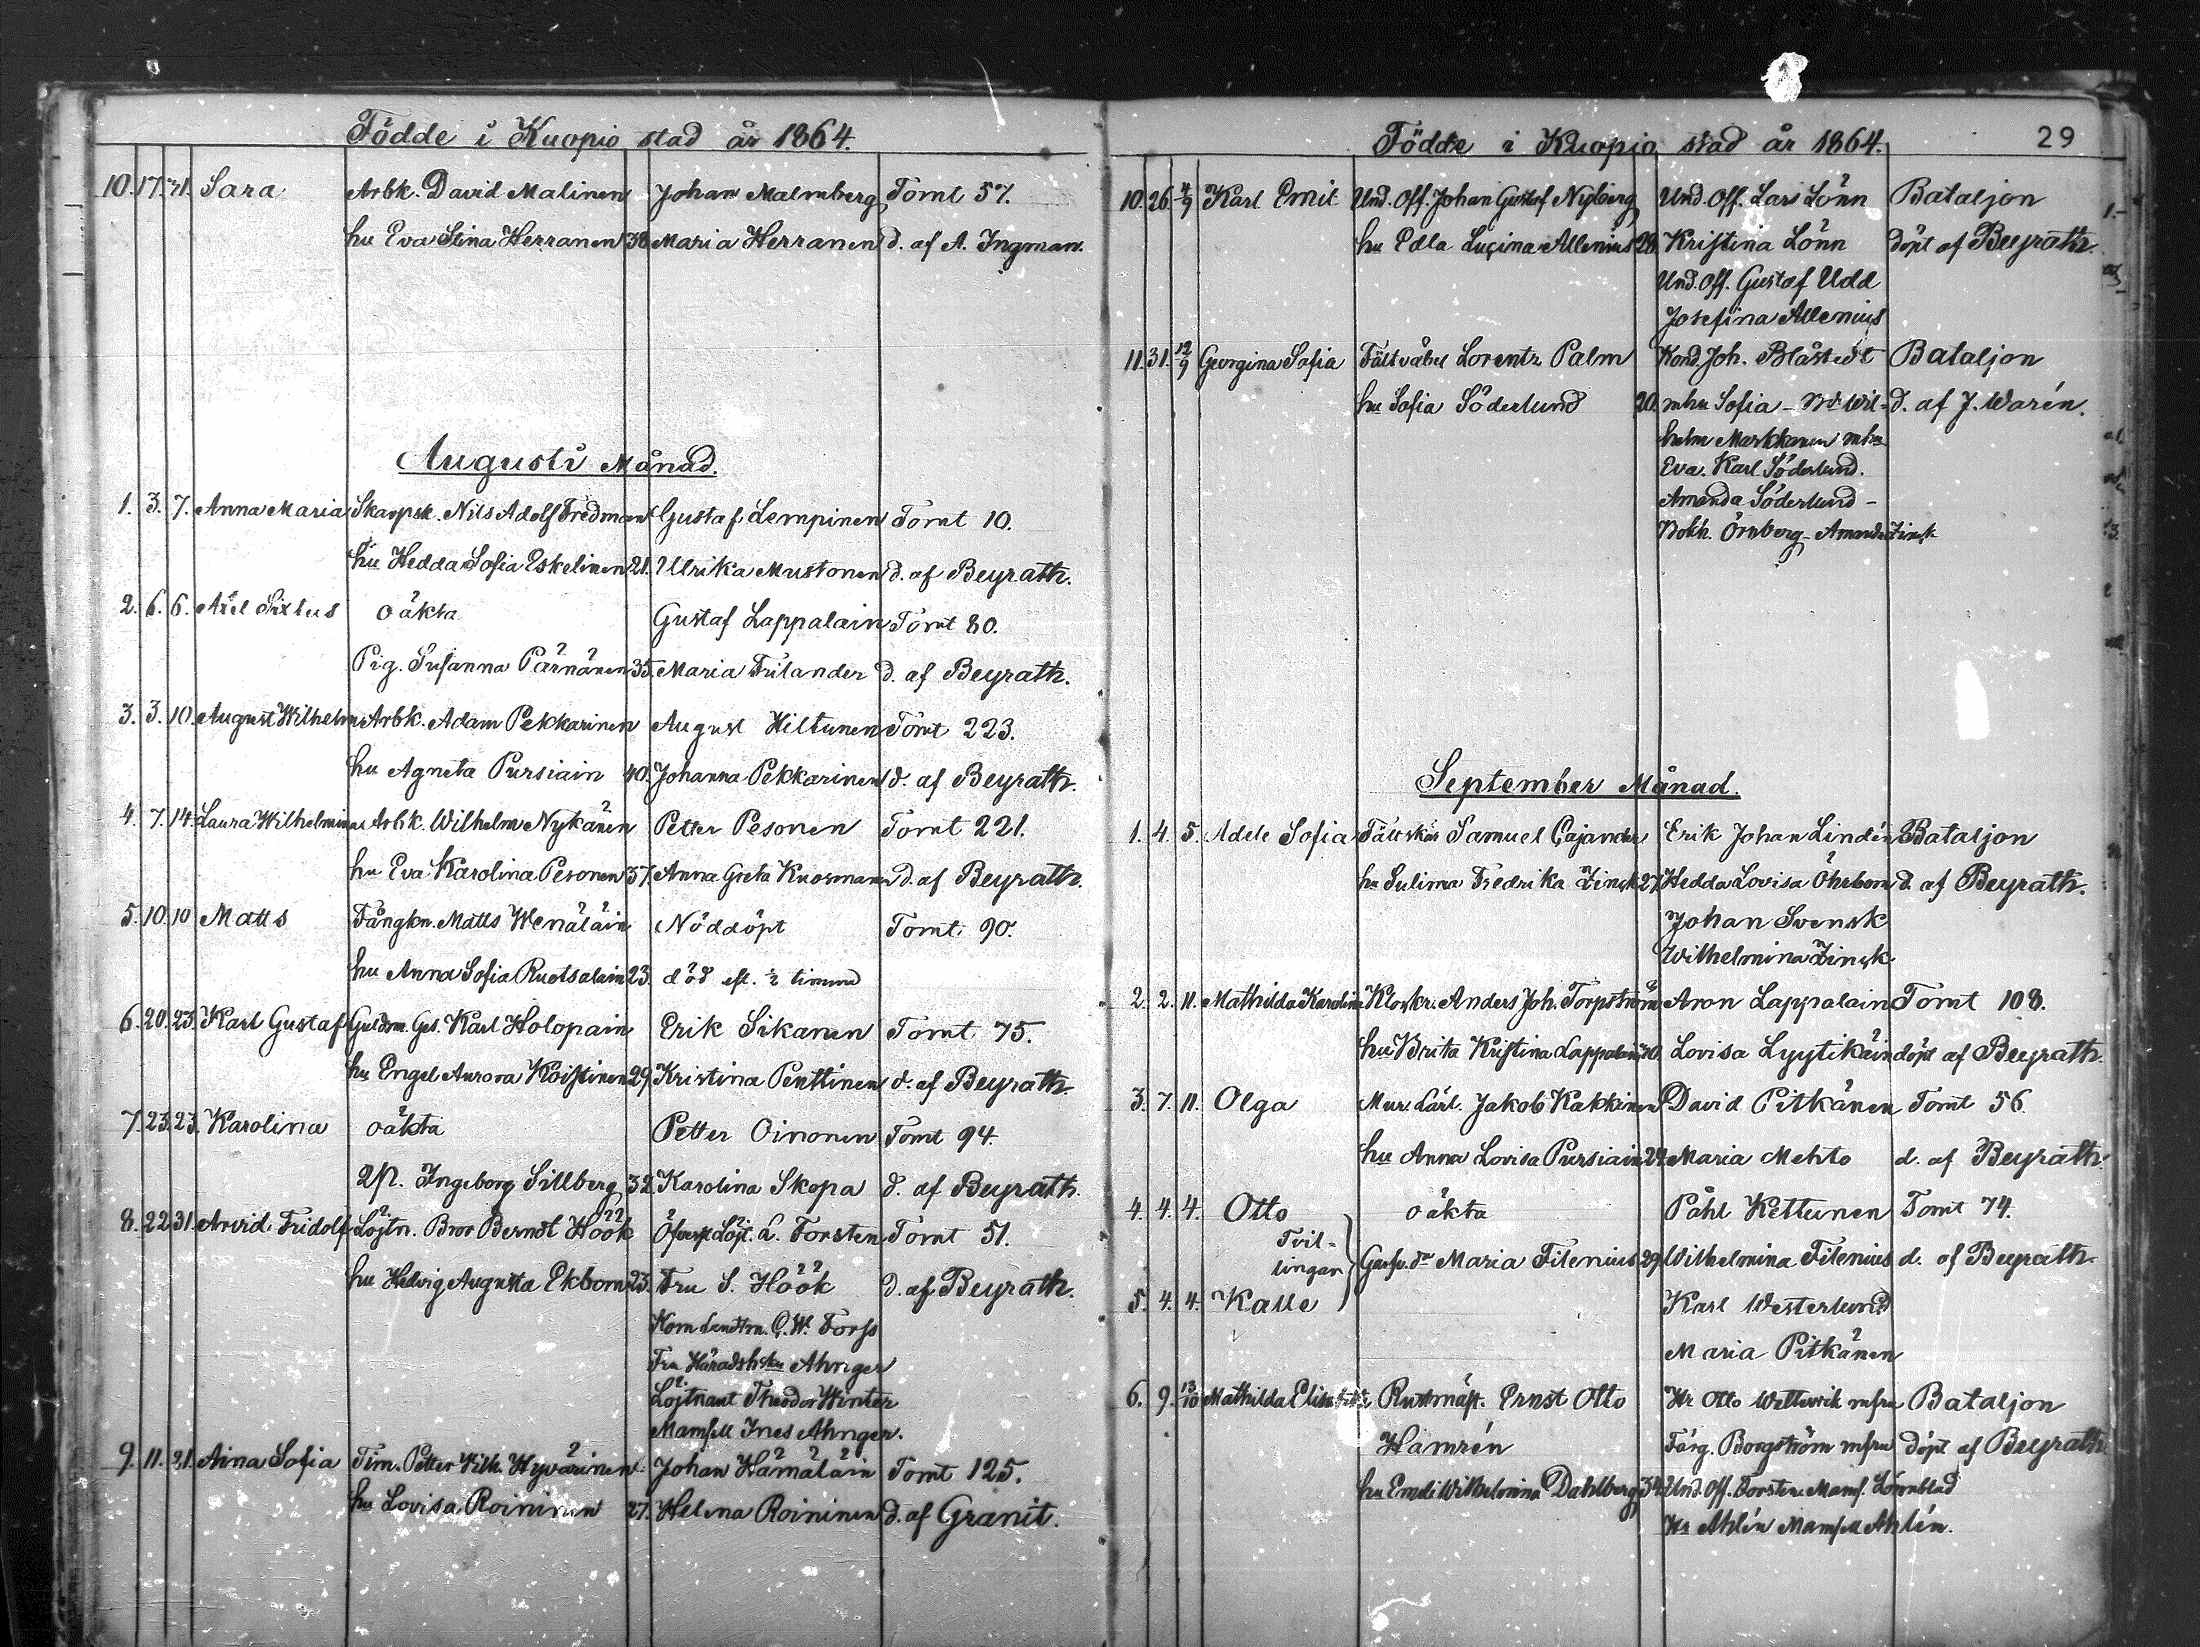 Födde i Kuopio stad år 1864.
10. 17. 31. Sara Arbk. David Malinen Johan Malmberg Tomt 57.
hu Eva Stina Herranen 38. Maria Herranen d. af A. Ingman.
Augusti Månad.
1. 3. 7. Anna Maria Nils Adolf Fredman Gustaf Lempinen Tomt 10.
hu Hedda Sofia Eskelinen 21. Ulrika Mustonen d. af Beyrath.
2. 6. 6. Axel Sixtus oäkta Gustaf Lappalain Tomt 80.
Pig. Susanna Pärnänen 35. Maria Frilander d. af Beyrath.
3. 3. 10. August Wilhelm Arbk. Adam Pekkarinen August Hiltunen Tomt 223.
hu Agneta Pursiain 40. Johanna Pekkarinen d. af Beyrath.
4. 7. 14. Laura Wilhelmina Arbk. Wilhelm Nykänen Petter Pesonen Tomt 221.
hu Eva Karolina Pesonen 37. Anna Greta Kuosmanen d. af Beyrath.
5. 10. 10 Matts Fångkn. Matts Wenäläin Nöddöpt Tomt 90.
hu Anna Sofia Ruotsalain 23. död eft. ½ timme
6. 20. 23. Karl Gustaf Guldsm. Ges. Karl Holopain Erik Sikanen Tomt 75.
hu Engel Aurora Koistinen 29. Kristina Penttinen d. af Beyrath.
7. 23. 23. Karolina oäkta Petter Oinonen Tomt 94.
Ingeborg Sillberg 32. Karolina Skopa d. af Beyrath.
8. 22. 31. Arvid Fridolf Löjtn. Bror Berndt Höök Löjt. L. Forsten Tomt 51.
hu Hedvig Augusta Ekbom 23. Fru S. Höök d. af Beyrath.
Kom Landtm. C. W. Forss
Fru Häradshsku Ahnger
Löjtnant Theodor Winter
Mamsell Ines Ahnger.
9. 11. 21. Aina Sofia Tim. Petter Wilh. Hyvärinen Johan Hämäläin Tomt 125.
hu Lovisa Roininen 27. Helena Roininen d. af Granit.
Födde i Kuopio stad år 1864. 29
10. 26. 4/9 Karl Emil Und. Off. Johan Gustaf Nyberg Und. Off. Lars Lönn Bataljon
hu Edla Lucina Allenius 28. Kristina Lönn döpt af Beyrath.
Und. Off. Gustaf Udd
Josefina Allenius
11. 31. 12/9 Georgina Sofia Fältväbel Lorentz Palm Kond. Joh. Blåstedt Bataljon
hu Sofia Söderlund 20. mhu Sofia - Wil- d. af J. Warén.
helm Markkanen mhu
Eva. Karl Söderlund.
Amanda Söderlund -
Bokh. Örnberg - Amanda Zinck
September Månad.
1. 4. 5. Adele Sofia Fältskär Samuel Cajander Erik Johan Lindén Bataljon
hu Sulima Fredrika Zinck 27. Hedda Lovisa Öhrbom d. af Beyrath.
Johan Svensk
Wilhelmina Zinck
2. 2. 11. Mathilda Karolina Klockr. Anders Joh. Torpström Aron Lappalain Tomt 108.
hu Brita Kristina Lappalain Lovisa Lyytikäin döpt af Beyrath.
3. 7. 11. Olga Mur. Lärl. Jakob Kakkinen David Pitkänen Tomt 56.
hu Anna Lovisa Pursiain 29. Maria Mehto d. af Beyrath.
4. 4. 4. Otto oäkta Påhl Kettunen Tomt 74.
Tvil-
lingar Maria Filenius 29. Wilhelmina Filenius d. af Beyrath.
5. 4. 4. Kalle Karl Westerlund
Maria Pitkänen
6. 9. 13/10 Mathilda Rustmäst. Ernst Otto Hr Otto mfru Bataljon
Hamrén Färg. Borgström mfru döpt af Beyrath
hu Wilhelmina Dahlberg 34. Und. Off. Forsten Mams. Lönnblad
Hr Ahlén Mamsell Ahlén.